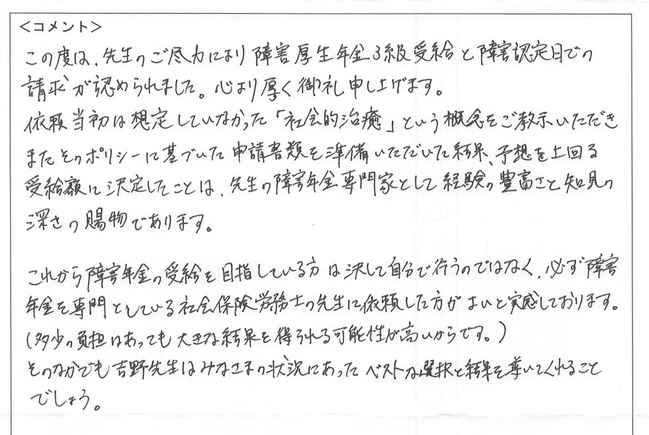 ＜コメント＞
この度は、先生のご尽力により障害厚生年金3級受給と障害認定日での
請求が認められました。心より厚く御礼申し上げます。
依頼当初は想定していなかった「社会的治癒」という概念をご教示いただき
またそのポリシーに基づいた申請書類を準備いただいた結果、予想を上回る
受給額に決定したことは、先生の障害年金専門家として経験の豊富さと知見の
深さの賜物であります。
これから障害年金の受給を目指している方は決して自分で行うのではなく、必ず障害
年金を専門としている社会保険労務士の先生に依頼した方がよいと実感しております。
(多少の負担はあっても大きな結果を得られる可能性が高いからです。)
そのなかでも吉野先生はみなさまの状況にあったベストな選択と結果を導いてくれること
でしょう。